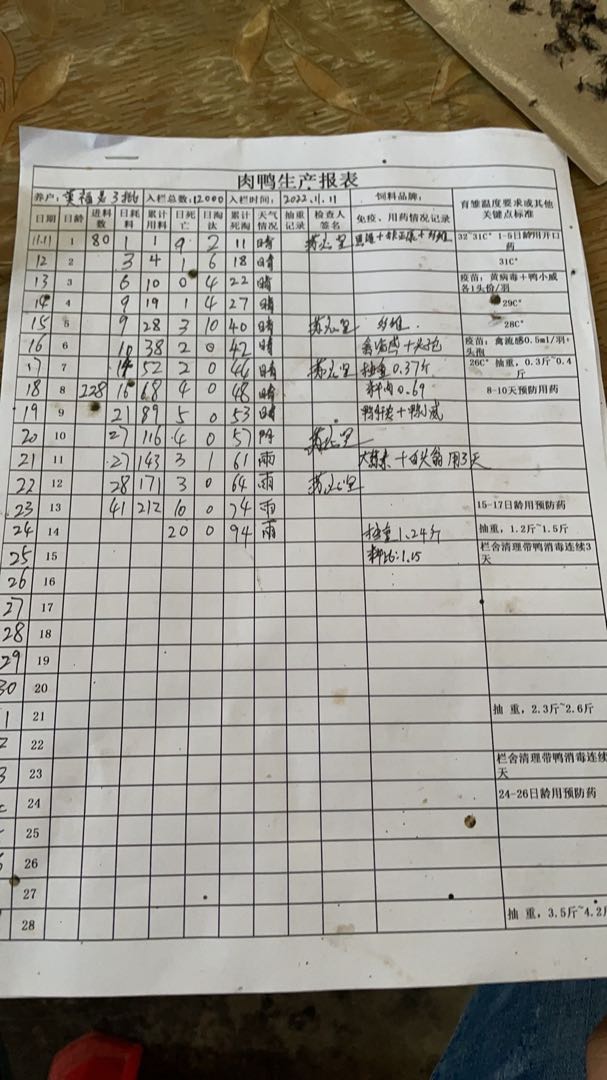 肉鸭生产报表
养户: 3批 入栏总数:12000 入栏时间: 2022.11.11 饲料品牌: 育雏温度要求或其他关键点标准
日期 日龄 进料数 日耗料 累计用料 日死亡 日淘汰 累计死淘 天气情况 抽重记录 检查人签名 免疫、用药情况记录
11.11 1 80 1 1 9 2 11 晴 32~31C° 1-5日龄用开口药
12 2 3 4 1 6 18 晴 31C°
13 3 6 10 0 4 22 晴 疫苗:黄病毒+鸭小威各1头份/羽
14 4 9 19 1 4 27 晴 29C°
15 5 9 28 3 10 40 晴 28C°
16 6 10 38 2 0 42 晴 禽流感+头孢 疫苗:禽流感0.5ml/羽+头孢
17 7 14 52 2 0 44 晴 抽重0.37斤 26C° 抽重,0.3斤~0.4斤
18 8 228 16 68 4 0 48 晴 料肉0.69 8-10天预防用药
19 9 21 89 5 0 53 晴
20 10 27 116 4 0 57
21 11 27 143 3 1 61 雨 用3天
22 12 28 171 3 0 64 雨
23 13 41 212 10 0 74 雨 15-17日龄用预防药
24 14 20 0 94 雨 抽重1.24斤 抽重,1.2斤~1.5斤
25 15 料比:1.15 栏舍清理带鸭消毒连续3天
26 16
27 17
28 18
29 19
30 20
1 21 抽重,2.3斤~2.6斤
22
23 栏舍清理带鸭消毒连续
天
24 24-26日龄用预防药
25
26
27
28 抽重,3.5斤~4.2斤